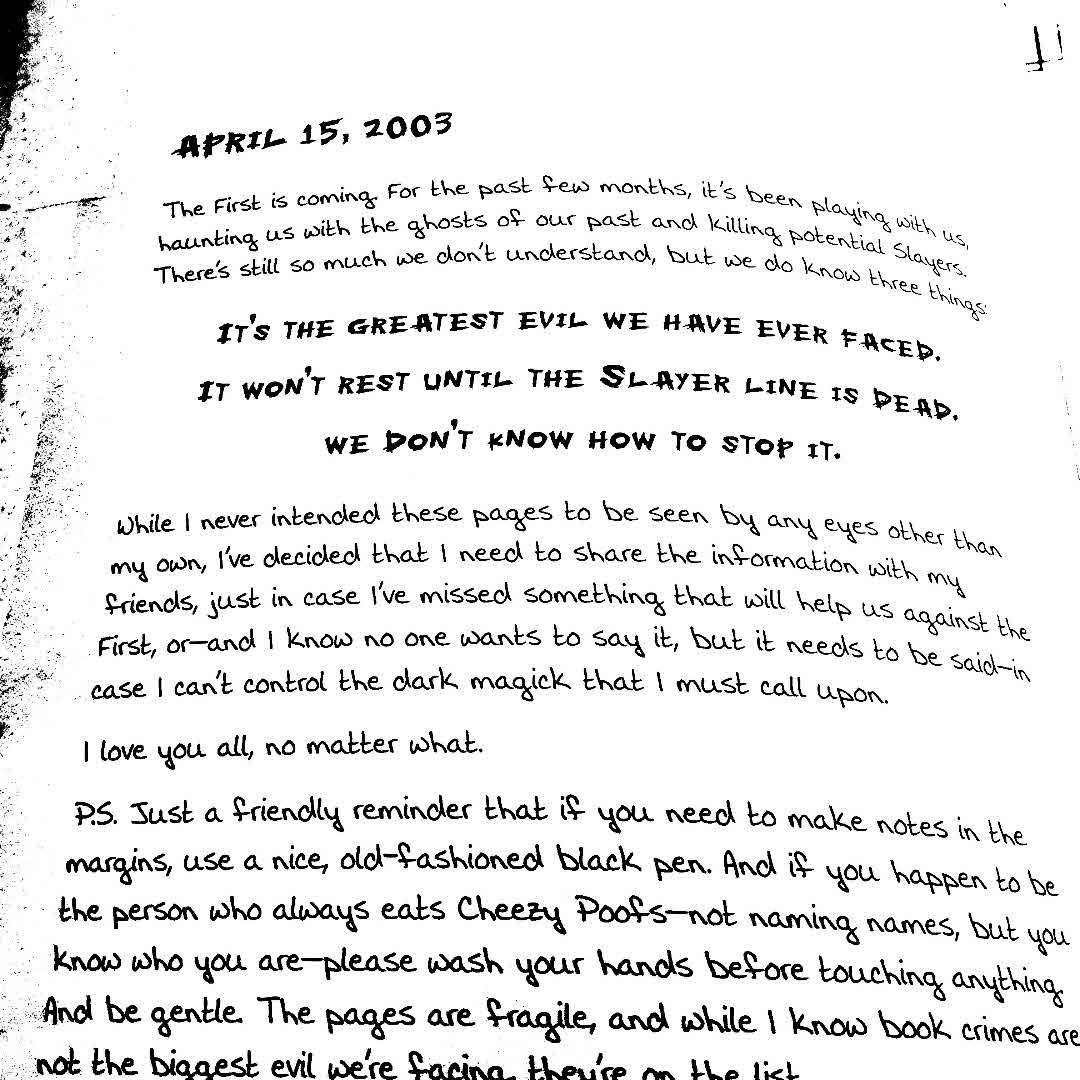 APRIL 15, 2003
The First is coming. For the past few months, it's been playing with us,
haunting us with the ghosts of our past and killing potential Slayers.
There's still so much we don't understand, but we do know three things:
IT'S THE GREATEST EVIL WE HAVE EVER FACED.
IT WON'T REST UNTIL THE SLAYER LINE IS DEAD.
WE DON'T KNOW HOW TO STOP IT.
While I never intended these pages to be seen by any eyes other than
my own, I've decided that I need to share the information with my
friends, just in case I've missed something that will help us against the
First, or—and I know no one wants to say it, but it needs to be said—in
case I can't control the dark magick that I must call upon.
I love you all, no matter what.
P.S. Just a friendly reminder that if you need to make notes in the
margins, use a nice, old-fashioned black pen. And if you happen to be
the person who always eats Cheezy Poofs—not naming names, but you
know who you are—please wash your hands before touching anything.
And be gentle. The pages are fragile, and while I know book crimes are
not the biggest evil we're facing, they're on the list